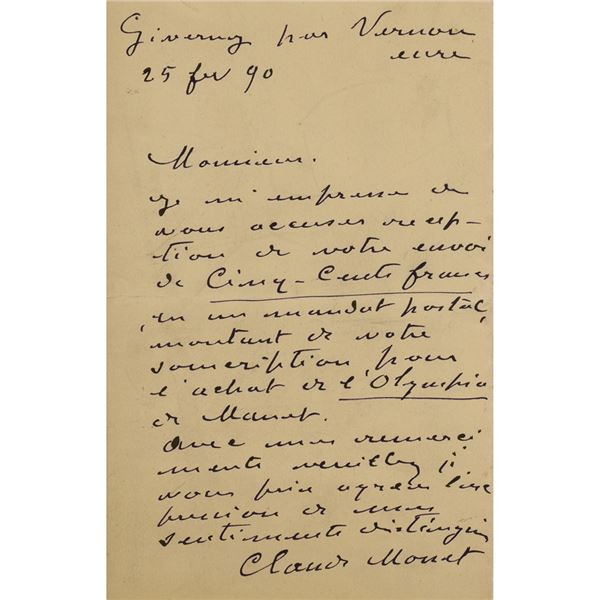 Giverny par Vernon
eure
25 fev 90
Monsieur.
Je m'empresse de
vous accuser récep-
tion de votre envoi
de Cinq-Cents francs
en un mandat postal,
montant de votre
souscription pour
l'achat de l'Olympia
de Manet.
Avec mes remerci
ments veuillez je
vous prie agréer l'ex
pression de mes
sentiments distingués
Claude Monet